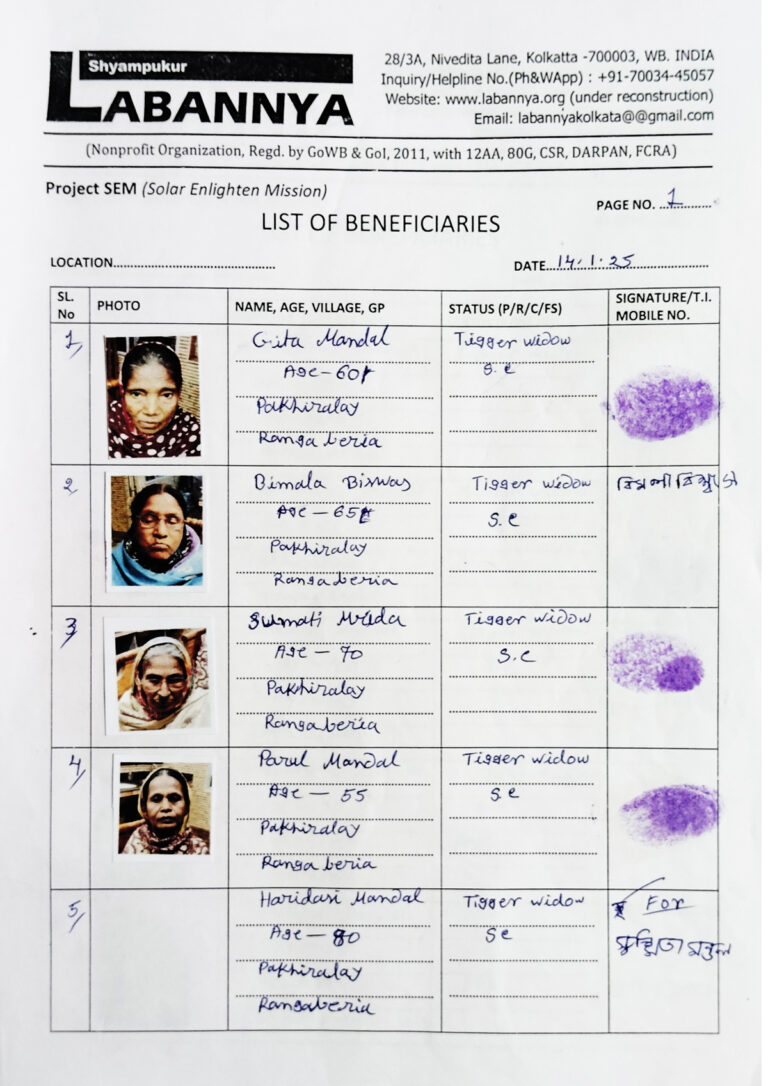 Shyampukur
LABANNYA
28/3A, Nivedita Lane, Kolkatta -700003, WB. INDIA
Inquiry/Helpline No.(Ph&WApp) : +91-70034-45057
Website: www.labannya.org (under reconstruction)
Email: labannyakolkata@@gmail.com
(Nonprofit Organization, Regd. by GoWB & GoI, 2011, with 12AA, 80G, CSR, DARPAN, FCRA)
Project SEM (Solar Enlighten Mission)
PAGE NO. 1
LIST OF BENEFICIARIES
LOCATION
DATE 14.1.25
SL. No PHOTO NAME, AGE, VILLAGE, GP STATUS (P/R/C/FS) SIGNATURE/T.I. MOBILE NO.
1 Gita Mandal Tigger widow
Age-60 S.C
Pakhiralay
Rangaberia
2 Bimala Biswas Tigger widow বিমলা বিশ্বাস
Age - 65 S.C
Pakhiralay
Rangaberia
3 Sumati Mrida Tigger widow
Age - 70 S.C
Pakhiralay
Rangaberia
4 Parul Mandal Tigger widow
Age - 55 S.C
Pakhiralay
Rangaberia
5 Haridasi Mandal Tigger widow For
Age - 80 SC
Pakhiralay
Rangaberia